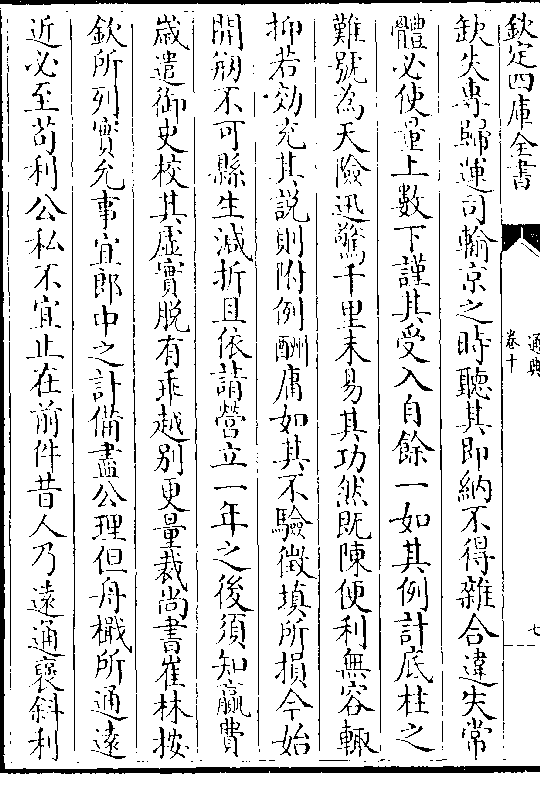 欽定四庫全書
通典
卷十
七
缺失專歸運司輸京之時聽其即納不得雜合違失常
體必使量上數下謹其受入自餘一如其例計底柱之
難號為天險迅驚千里未易其功然既陳便利無容輒
抑若効充其說則附例酬庸如其不驗徵填所損今始
開剏不可縣生減折且依請營立一年之後須知贏費
歳遣御史校其虛實脱有乖越别更量裁尚書崔林按
欽所列實允事宜郎中之計備盡公理但舟檝所通遠
近必至苟利公私不宜止在前件昔人乃遠通襃斜利